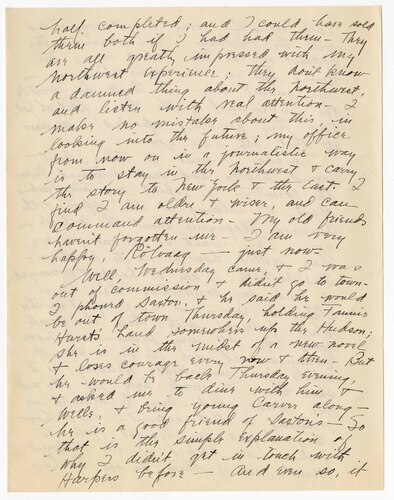 half completed; and I could have sold
them both if I had had them – They
are all greatly impressed with my
northwest experience; they don't know
a damned thing about the northwest,
and listen with real attention – I
make no mistake about this, in
looking into the future; my office
from now on in a journalistic way
is to stay in the northwest & carry
the story to New York & the East. I
find I am older & wiser, and can
command attention – My old friends
haven't forgotten me – I am very
happy, Rölvaag – just now –
Well, Wednesday came, & I was
out of commission & didn't go to town –
I phoned Saxton, & he said he would
be out of town Thursday, holding Fannie
Hurst's hand somewhere up the Hudson;
she is in the midst of a new novel
& loses courage every now & then – But
he would be back Thursday evening,
& asked me to dine with him &
Wells, & bring young Carver along –
he is a good friend of Saxton's – So
that is the simple explanation of
why I didn't get in touch with
Harpers before – and even so, it